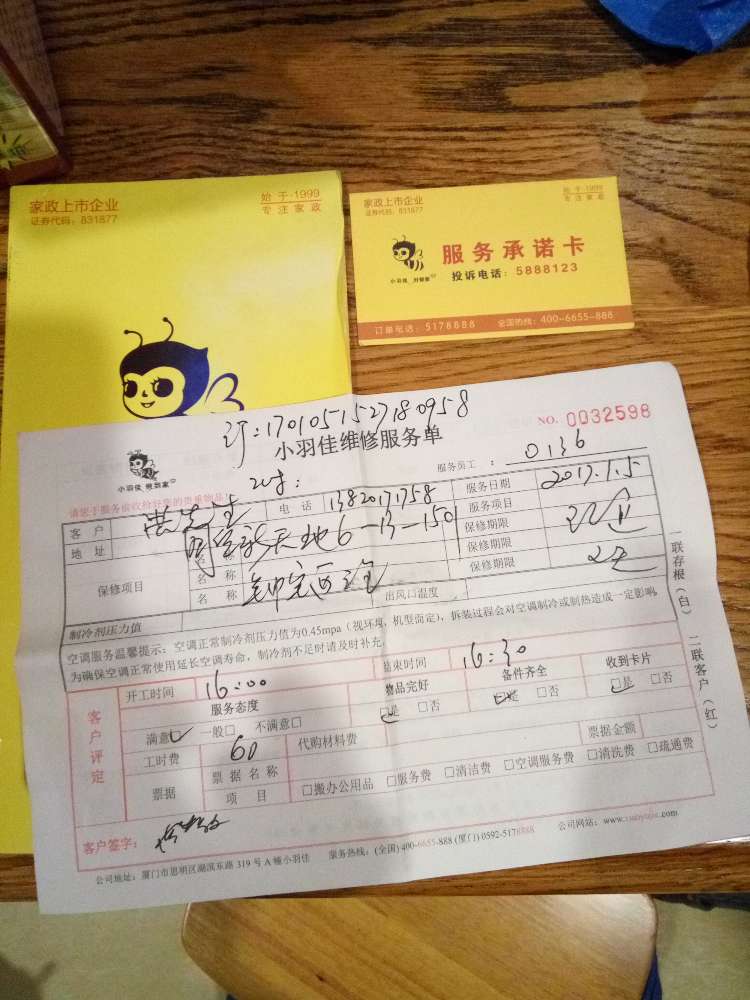 家政上市企业
证券代码：831877
始于·1999
专注家政
家政上市企业
证券代码：831877
始于·1999
专注家政
服务承诺卡
投诉电话：5888123
小羽佳
订单电话：5178888 全国热线：400-6655-888
订：170105152718 0958
小羽佳维修服务单
NO. 0032598
小羽佳
服务员工： 0136
请您于服务前收拾好您的贵重物品！
客户
电话 13820171758
服务日期 2017.1.5
地址
6-13-1501
服务项目
保修期限
保修项目
名称
保修期限
名称
保修期限
制冷剂压力值
出风口温度
空调服务温馨提示：空调正常制冷剂压力值为0.45mpa（视环境，机型而定），拆装过程会对空调制冷或制热造成一定影响，
为确保空调正常使用延长空调寿命，制冷剂不足时请及时补充。
一联存根（白）
二联客户（红）
客户评定
开工时间 16:00
结束时间 16:30
服务态度
物品完好
备件齐全
收到卡片
满意 一般□ 不满意□
□是 □否
□是 □否
□是 □否
工时费 60
代购材料费
票据金额
票据
票据名称
项目
□搬办公用品 □服务费 □清洁费 □空调服务费 □清洗费 □疏通费
客户签字：
公司地址：厦门市思明区湖滨东路319号A幢小羽佳
服务热线：(全国)400-6655-888 (厦门)0592-5178888
公司网站：www.xiaoyujia.com